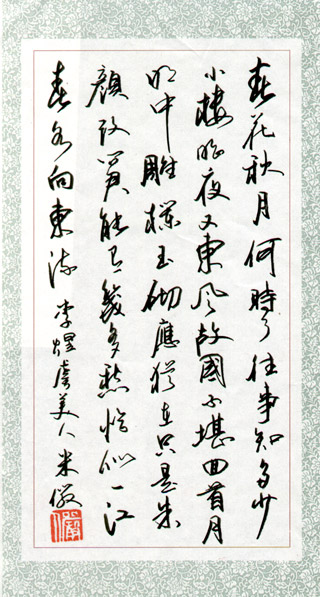 春花秋月何時了往事知多少
小樓昨夜又東風故國不堪回首月
明中雕欄玉砌應猶在只是朱
顏改問君能有幾多愁恰似一江
春水向東流 李煜虞美人 米